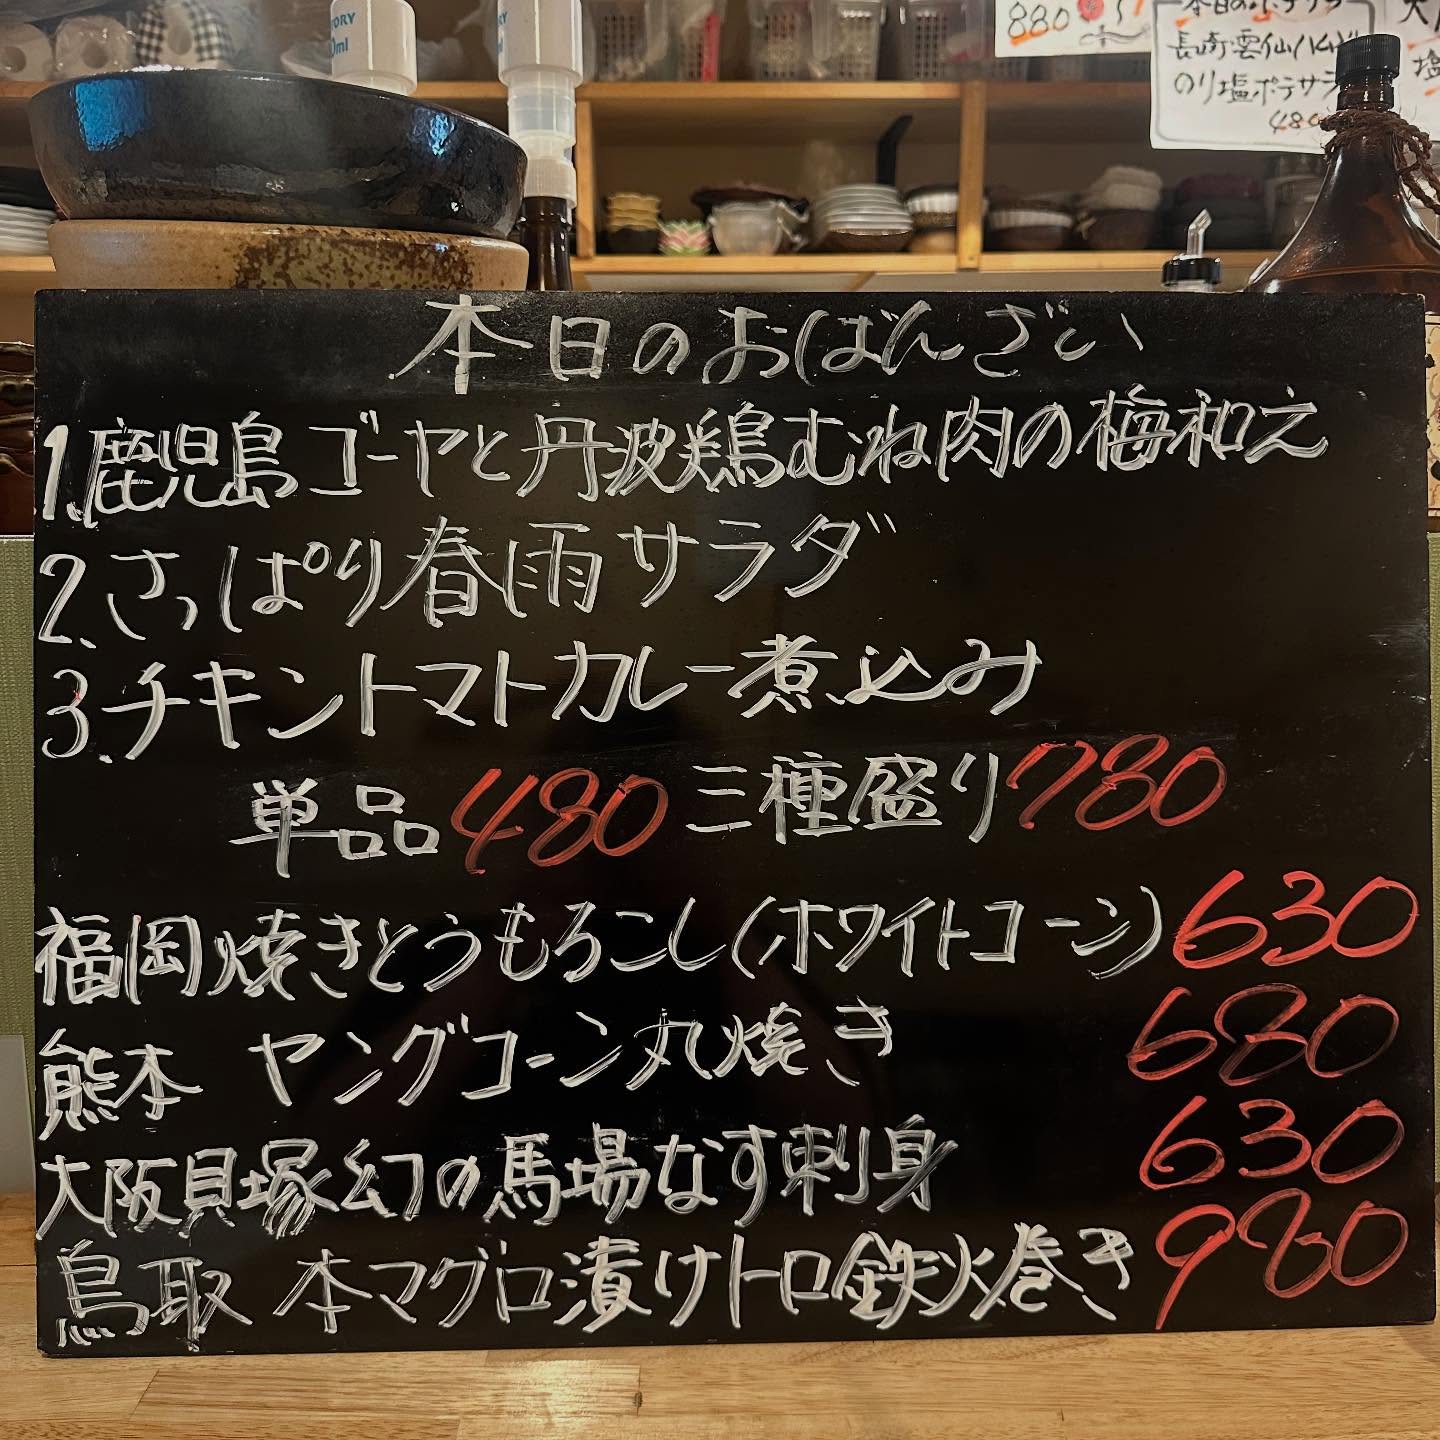 880
本日のポテサラ
長崎雲仙ハム
のり塩ポテサラ
480
本日のおばんざい
1.鹿児島ゴーヤと丹波鶏むね肉の梅和え
2.さっぱり春雨サラダ
3.チキントマトカレー煮込み
単品480 三種盛り780
福岡焼きとうもろこし(ホワイトコーン) 630
熊本 ヤングコーン丸焼き 680
大阪貝塚幻の馬場なす刺身 630
鳥取 本マグロ漬けトロ鉄火巻き 980